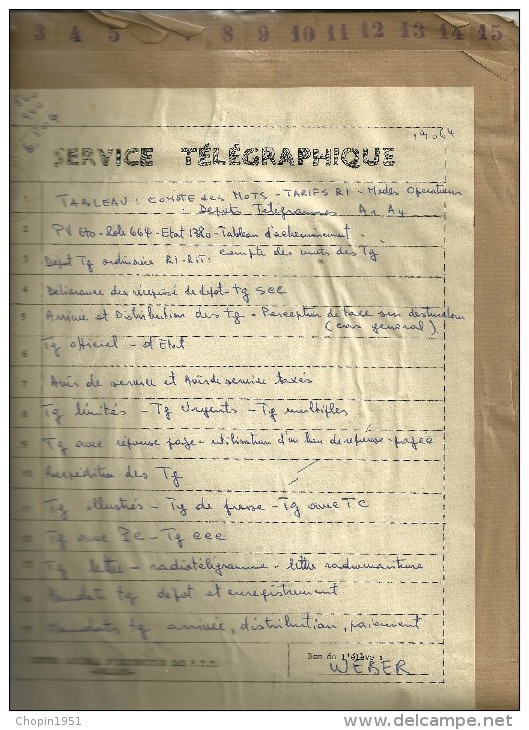 3 4 5 7 8 9 10 11 12 13 14 15
SERVICE TÉLÉGRAPHIQUE
1 TABLEAU : COMPTE des MOTS - TARIFS RI - Modes Opératoires
Dépôts Télégrammes A1 A4
2 PV 610 - Role 664 - Etat 1380 - Tableau d'acheminement
3 Dépot Tg ordinaire RI - RIT : Compte des mots des Tg
4 Délivrance des récépissé de dépot - Tg SEC
5 Arrivée et Distribution des Tg - Perception de taxe sur destinataire
(cas général)
6 Tg officiel - d'Etat
7 Avis de service et Avis de service taxés
8 Tg limités - Tg Urgents - Tg multiples
9 Tg avec réponse payée - utilisation d'un bon de réponse - payée
10 Réexpédition des Tg
11 Tg illustrés - Tg de presse - Tg avec TC
12 Tg avec PC - Tg CCC
13 Tg lettre - radiotélégramme - lettre radiomaritime
Mandats Tg dépot et enregistrement
Mandats Tg arrivée, distribution, paiement
Nom de l'élève :
WEBER
Chopin1951
www.delcampe.net